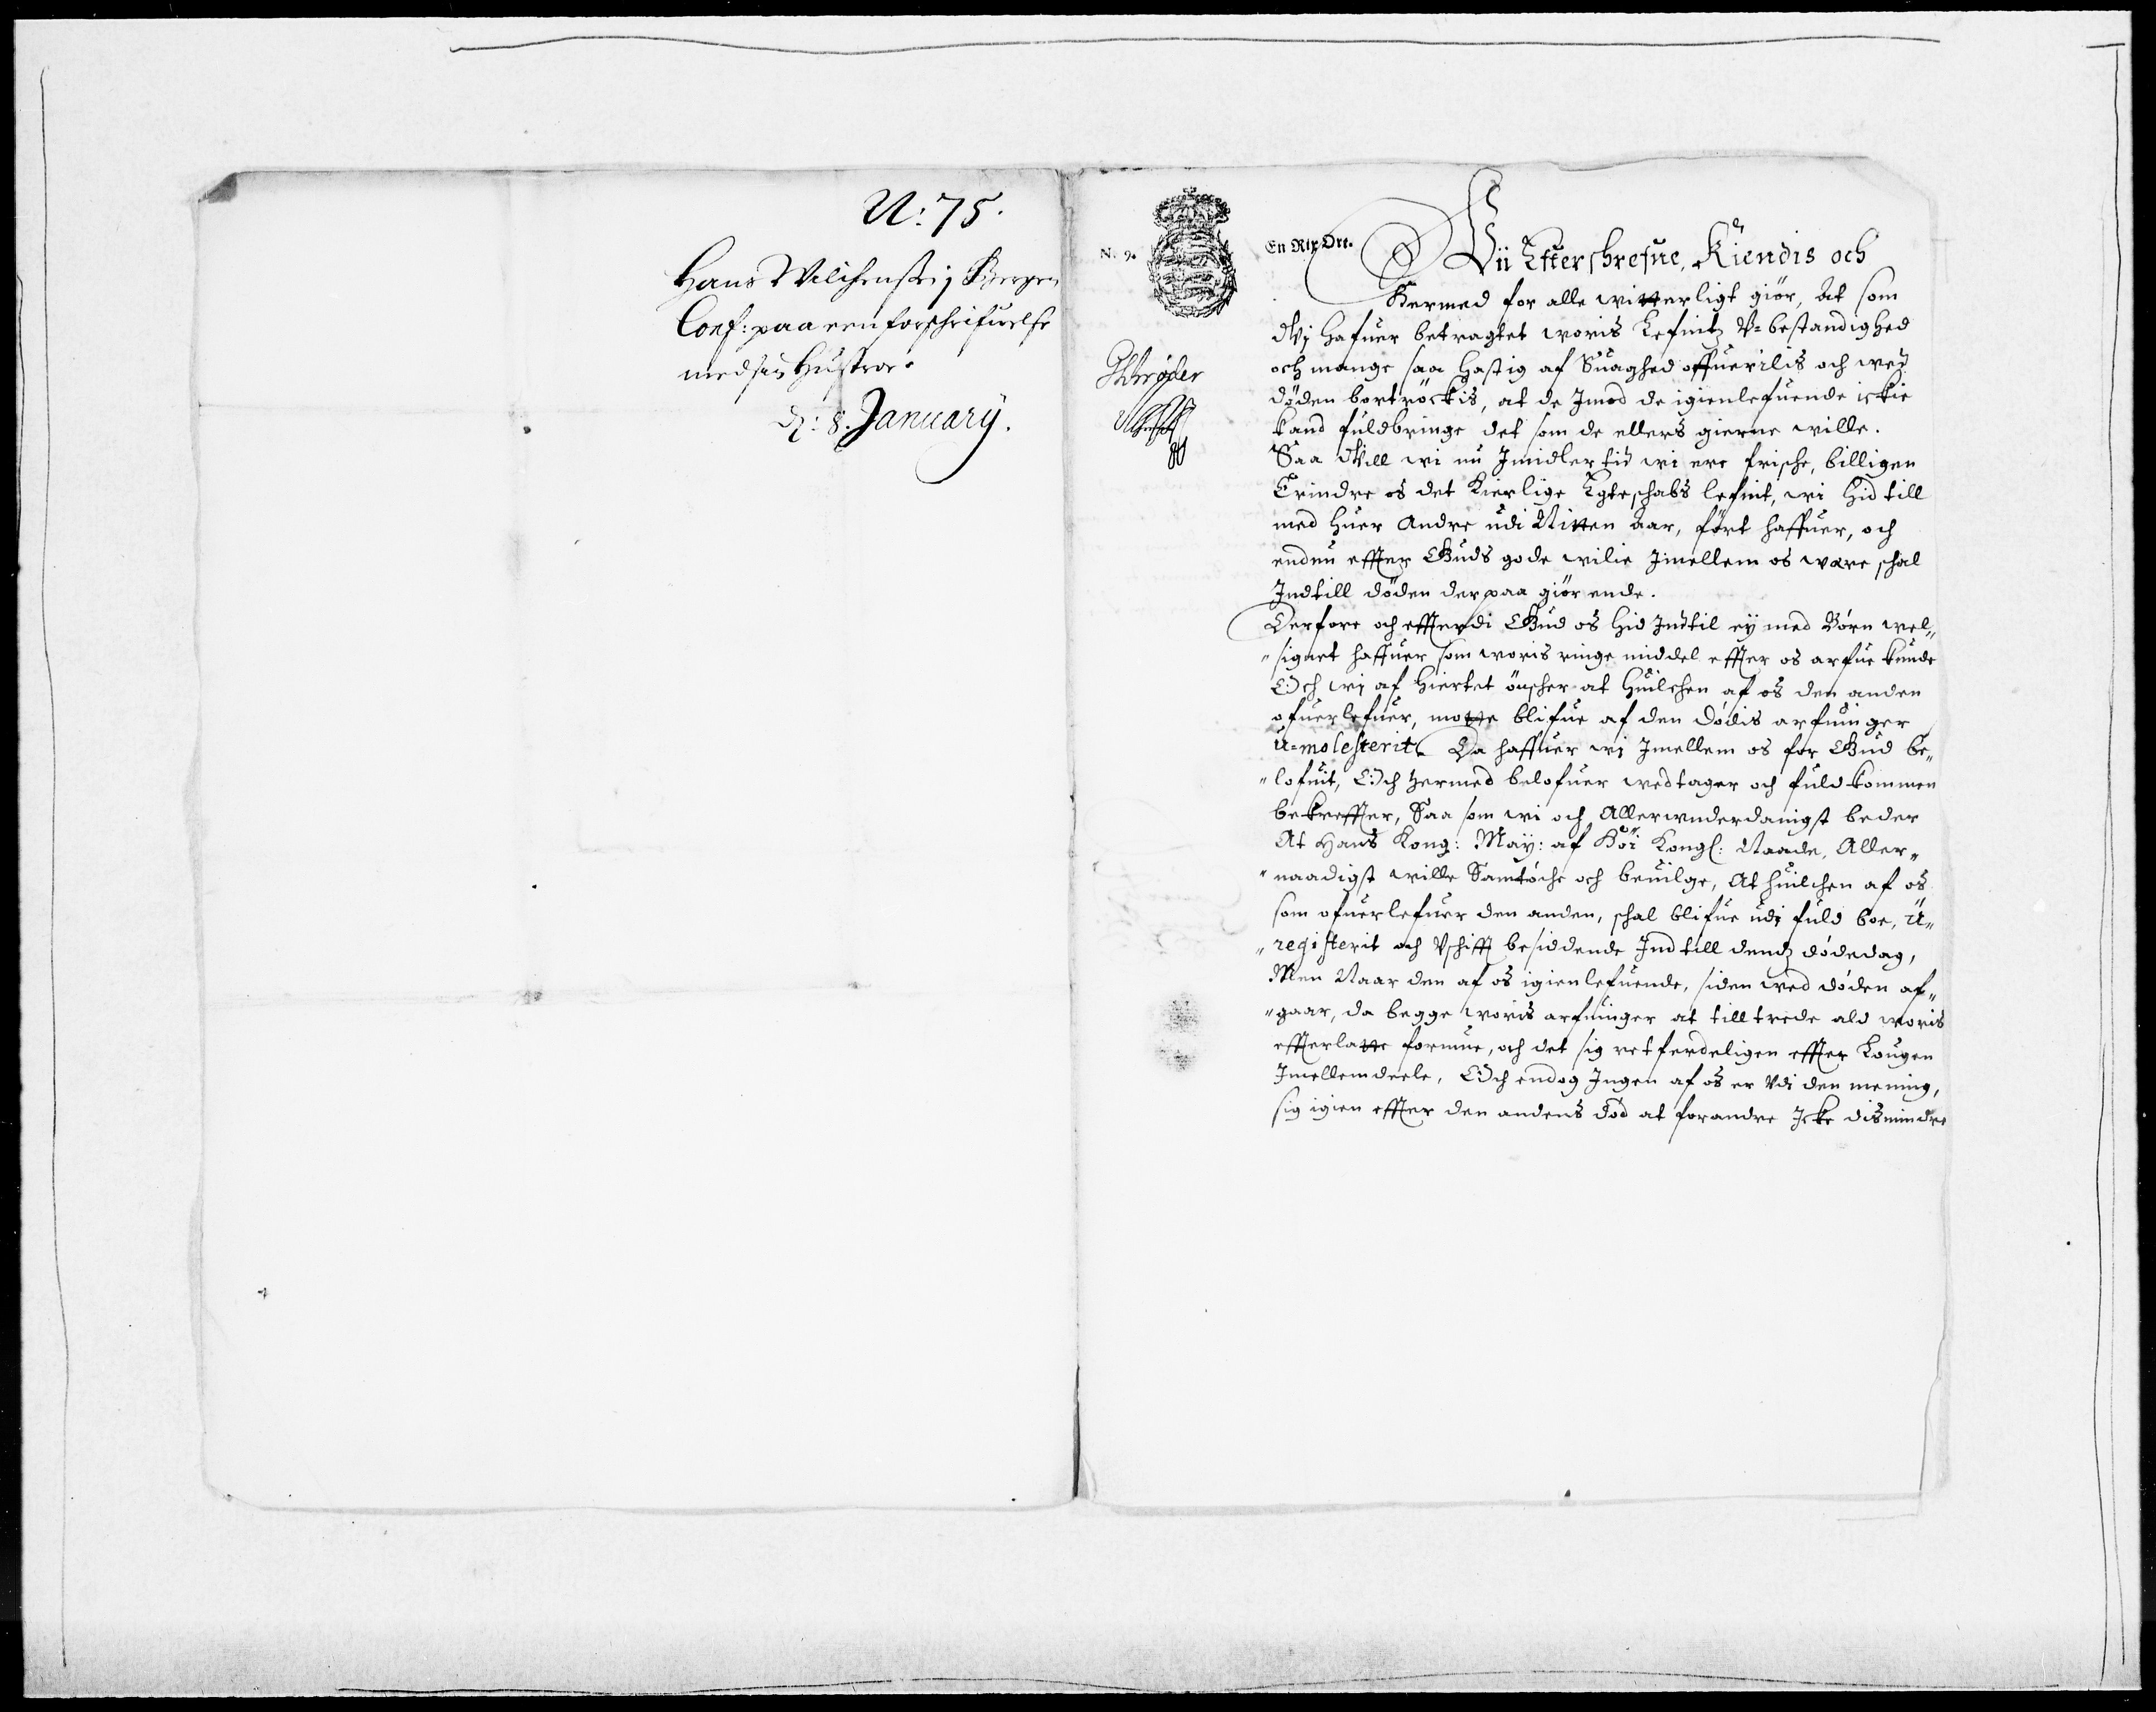 N: 75.
Hans Wilchens i Bergen
Conf: paa een forschrifuelse
med sin Hustroe
d: 8. January.
N. 9.
En Rix Ort.
Schrøder
Wii Effterschrefne, Kiendis och
Hermed for alle witterligt giør, At som
Wj hafuer betragtet woris Lefnitz V-bestandighed
och mange saa hastig af Suaghed offuerilis och wed
døden bortrøckis, at de Imod de igienlefuende ickie
kand fuldbringe det som de ellers gierne wille.
Saa Will wi nu Imidlertid wi ere frische, billigen
Erindre os det Kierlige Egteschabs lefnit, wi hid till
med huer Andre udi Nitten Aar, ført haffuer, och
endnu effter Guds gode wilie Imellem os were schal
Indtill døden der paa giør ende.
Derfore och effterdi Gud os hid Indtil ey med Børn wel„
„signet haffuer som woris ringe middel effter os arfue kunde
Och wj af Hiertet ønscher at huilchen af os den anden
ofuerlefuer, motte blifue af den dødis arfuinger
u-molesterit. Da haffuer wj Imellem os for Gud be„
„lofuit, Och hermed belofuer wedtager och fuldkommen
bekreffter, Saa som wi och Allerwnderdanigst beder
At Hans Kong: May: af Høi Kongl: Naade, Aller„
„naadigst wille Samtøche och beuilge, At huilchen af os
som ofuerlefuer den anden, schal blifue udj fuld boe, U„
„registerit och Vschifft besiddende Ind till dends dødedag,
Men Naar den af os igienlefuende, siden wed døden af„
„gaar, da begge woris arfuinger at till trede ald woris
effterlatte formue, och det sig retferdeligen effter Lougen
Imellem deele, Och endog Ingen af os er Vdi den mening,
sig igien effter den andens død at forandre Icke dismindre